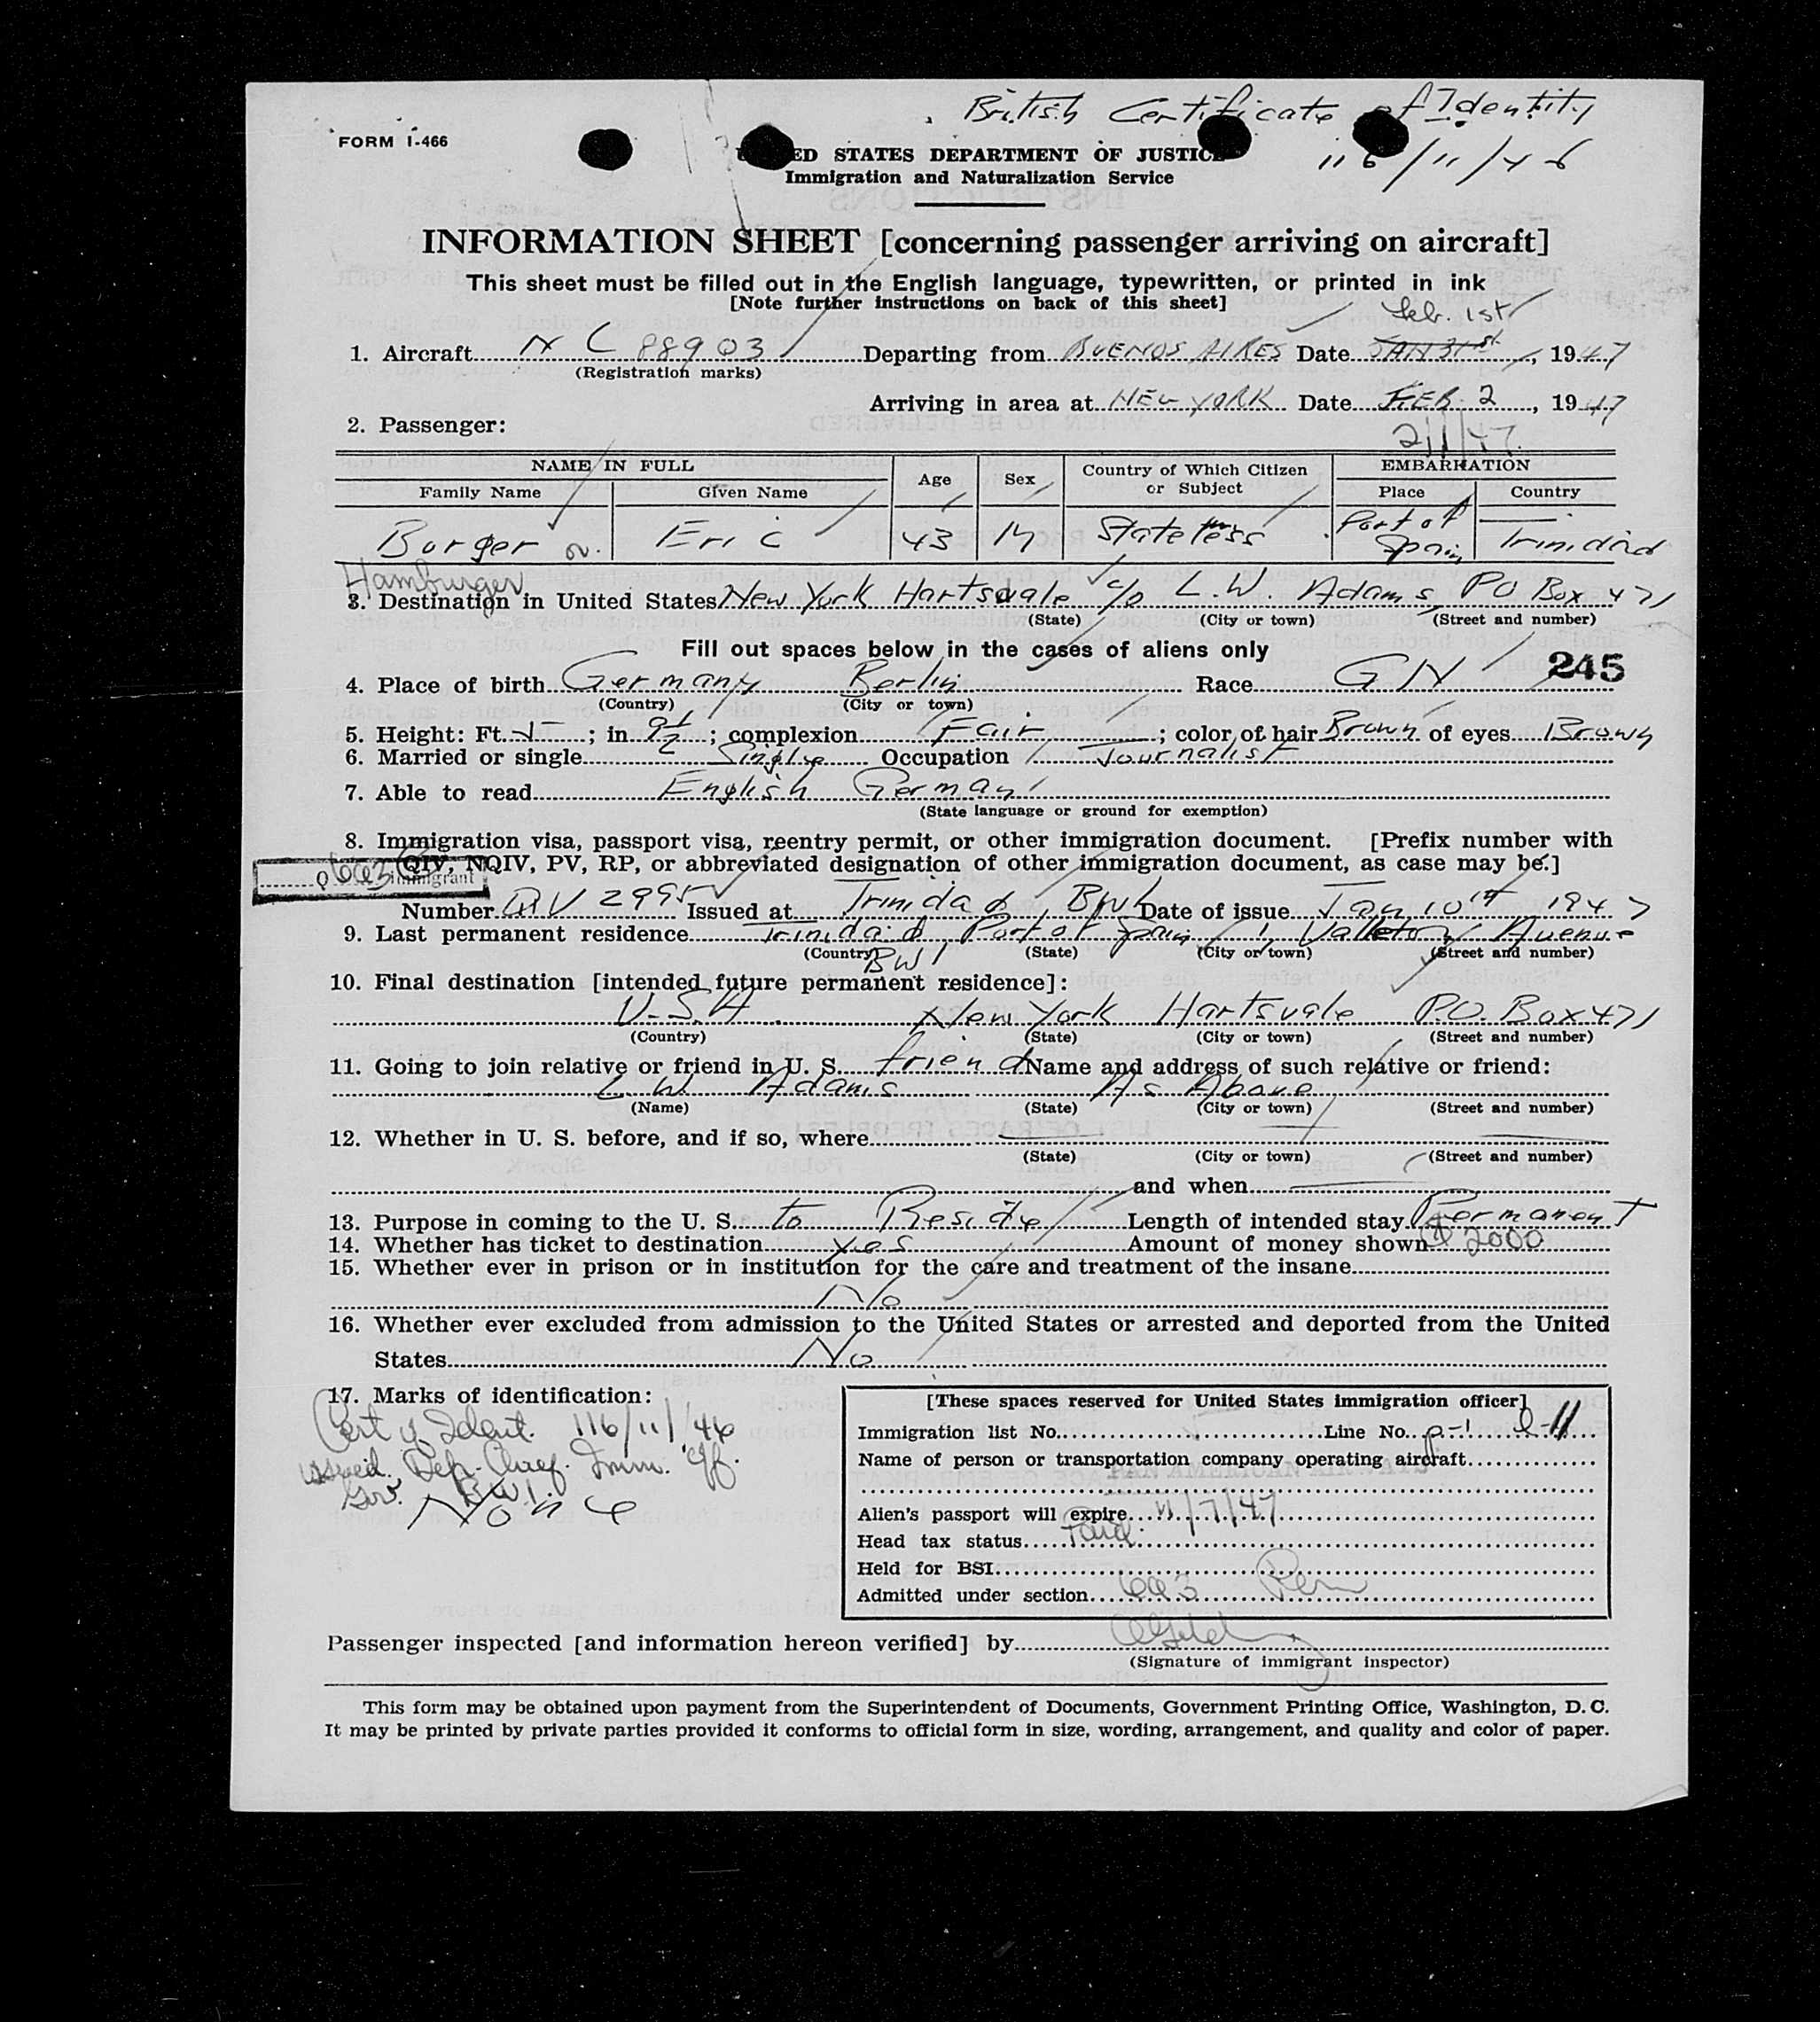 British Certificate of Identity
116/11/46
FORM I-466
UNITED STATES DEPARTMENT OF JUSTICE
Immigration and Naturalization Service
INFORMATION SHEET [concerning passenger arriving on aircraft]
This sheet must be filled out in the English language, typewritten, or printed in ink
[Note further instructions on back of this sheet]
Feb. 1st
1. Aircraft NC 88903 Departing from BUENOS AIRES Date JAN 31st, 1947
(Registration marks)
Arriving in area at NEW YORK Date FEB 2, 1947
2. Passenger: 2/1/47.
NAME IN FULL Age Sex Country of Which Citizen or Subject EMBARKATION
Family Name Given Name Place Country
Burger or Eric 43 M Stateless Port of Spain Trinidad
Hamburger
3. Destination in United States New York Hartsdale c/o L.W. Adams, PO Box 471
(State) (City or town) (Street and number)
Fill out spaces below in the cases of aliens only
245
4. Place of birth Germany Berlin Race GN
(Country) (City or town)
5. Height: Ft. 5; in 9½; complexion Fair; color of hair Brown of eyes Brown
6. Married or single Single Occupation Journalist
7. Able to read English German
(State language or ground for exemption)
8. Immigration visa, passport visa, reentry permit, or other immigration document. [Prefix number with
QIV, NQIV, PV, RP, or abbreviated designation of other immigration document, as case may be.]
Q 6a3 immigrant
Number QIV 2995 Issued at Trinidad BWI Date of issue Jan 10th 1947
9. Last permanent residence Trinidad Port of Spain 1, Valleton Avenue
(Country) (State) (City or town) (Street and number)
BWI
10. Final destination [intended future permanent residece]:
U.S.A. New York Hartsvale P.O. Box 471
(Country) (State) (City or town) (Street and number)
11. Going to join relative or friend in U. S. friend Name and address of such relative or friend:
L W Adams As Above
(Name) (State) (City or town) (Street and number)
12. Whether in U. S. before, and if so, where
(State) (City or town) (Street and number)
and when
13. Purpose in coming to the U. S. to Reside Length of intended stay Permanent
14. Whether has ticket to destination yes Amount of money shown $2000
15. Whether ever in prison or in institution for the care and treatment of the insane
No
16. Whether ever excluded from admission to the United States or arrested and deported from the United
States No
17. Marks of identification:
Cert of Ident. 116/11/46
issued Dep. Chief Imm. Off.
Gov. BWI.
None
[These spaces reserved for United States immigration officer]
Immigration list No. Line No. p-1 l-11
Name of person or transportation company operating aircraft
PAN AMERICAN AIRWAYS
Alien's passport will expire 11/7/47
Head tax status Paid.
Held for BSI
Admitted under section 6a3 Perm
Passenger inspected [and information hereon verified] by
(Signature of immigrant inspector)
This form may be obtained upon payment from the Superintendent of Documents, Government Printing Office, Washington, D. C.
It may be printed by private parties provided it conforms to official form in size, wording, arrangement, and quality and color of paper.